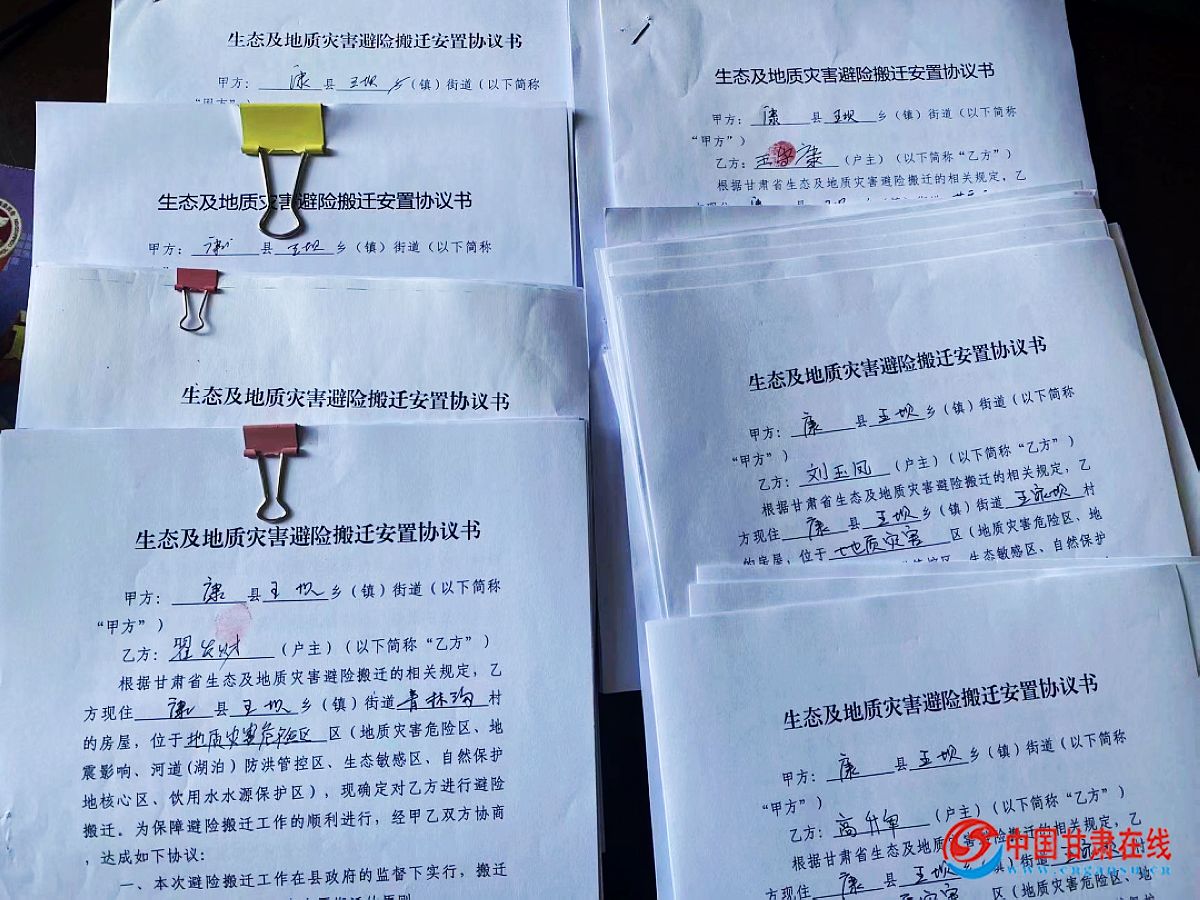 生态及地质灾害避险搬迁安置协议书
甲方：康县王坝乡（镇）街道（以下简称
“甲方”）
生态及地质灾害避险搬迁安置协议书
甲方：康县王坝乡（镇）街道（以下简称
生态及地质灾害避险搬迁安置协议书
生态及地质灾害避险搬迁安置协议书
甲方：康县王坝乡（镇）街道（以下简称
“甲方”）
乙方：翟发财（户主）（以下简称“乙方”）
根据甘肃省生态及地质灾害避险搬迁的相关规定，乙
方现住康县王坝乡（镇）街道青林沟村
的房屋，位于地质灾害危险区区（地质灾害危险区、地
震影响、河道(湖泊）防洪管控区、生态敏感区、自然保护
地核心区、饮用水水源保护区），现确定对乙方进行避险
搬迁。为保障避险搬迁工作的顺利进行，经甲乙双方协商
，达成如下协议：
一、本次避险搬迁工作在县政府的监督下实行，搬迁
生态及地质灾害避险搬迁安置协议书
甲方：康县王坝乡（镇）街道（以下简称
“甲方”）
乙方：王家康（户主）（以下简称“乙方”）
根据甘肃省生态及地质灾害避险搬迁的相关规定，乙
生态及地质灾害避险搬迁安置协议书
甲方：康县王坝乡（镇）街道（以下简称
“甲方”）
乙方：刘玉凤（户主）（以下简称“乙方”）
根据甘肃省生态及地质灾害避险搬迁的相关规定，乙
方现住康县王坝乡（镇）街道王家坝村
的房屋，位于地质灾害区（地质灾害危险区、地
生态敏感区、自然保护
生态及地质灾害避险搬迁安置协议书
甲方：康县王坝乡（镇）街道（以下简称
“甲方”）
乙方：高升军（户主）（以下简称“乙方”）
根据甘肃省生态及地质灾害避险搬迁的相关规定，乙
方现住康县王坝乡（镇）街道王家坝村
区（地质灾害危险区、地
中国甘肃在线
www.cngansu.cn